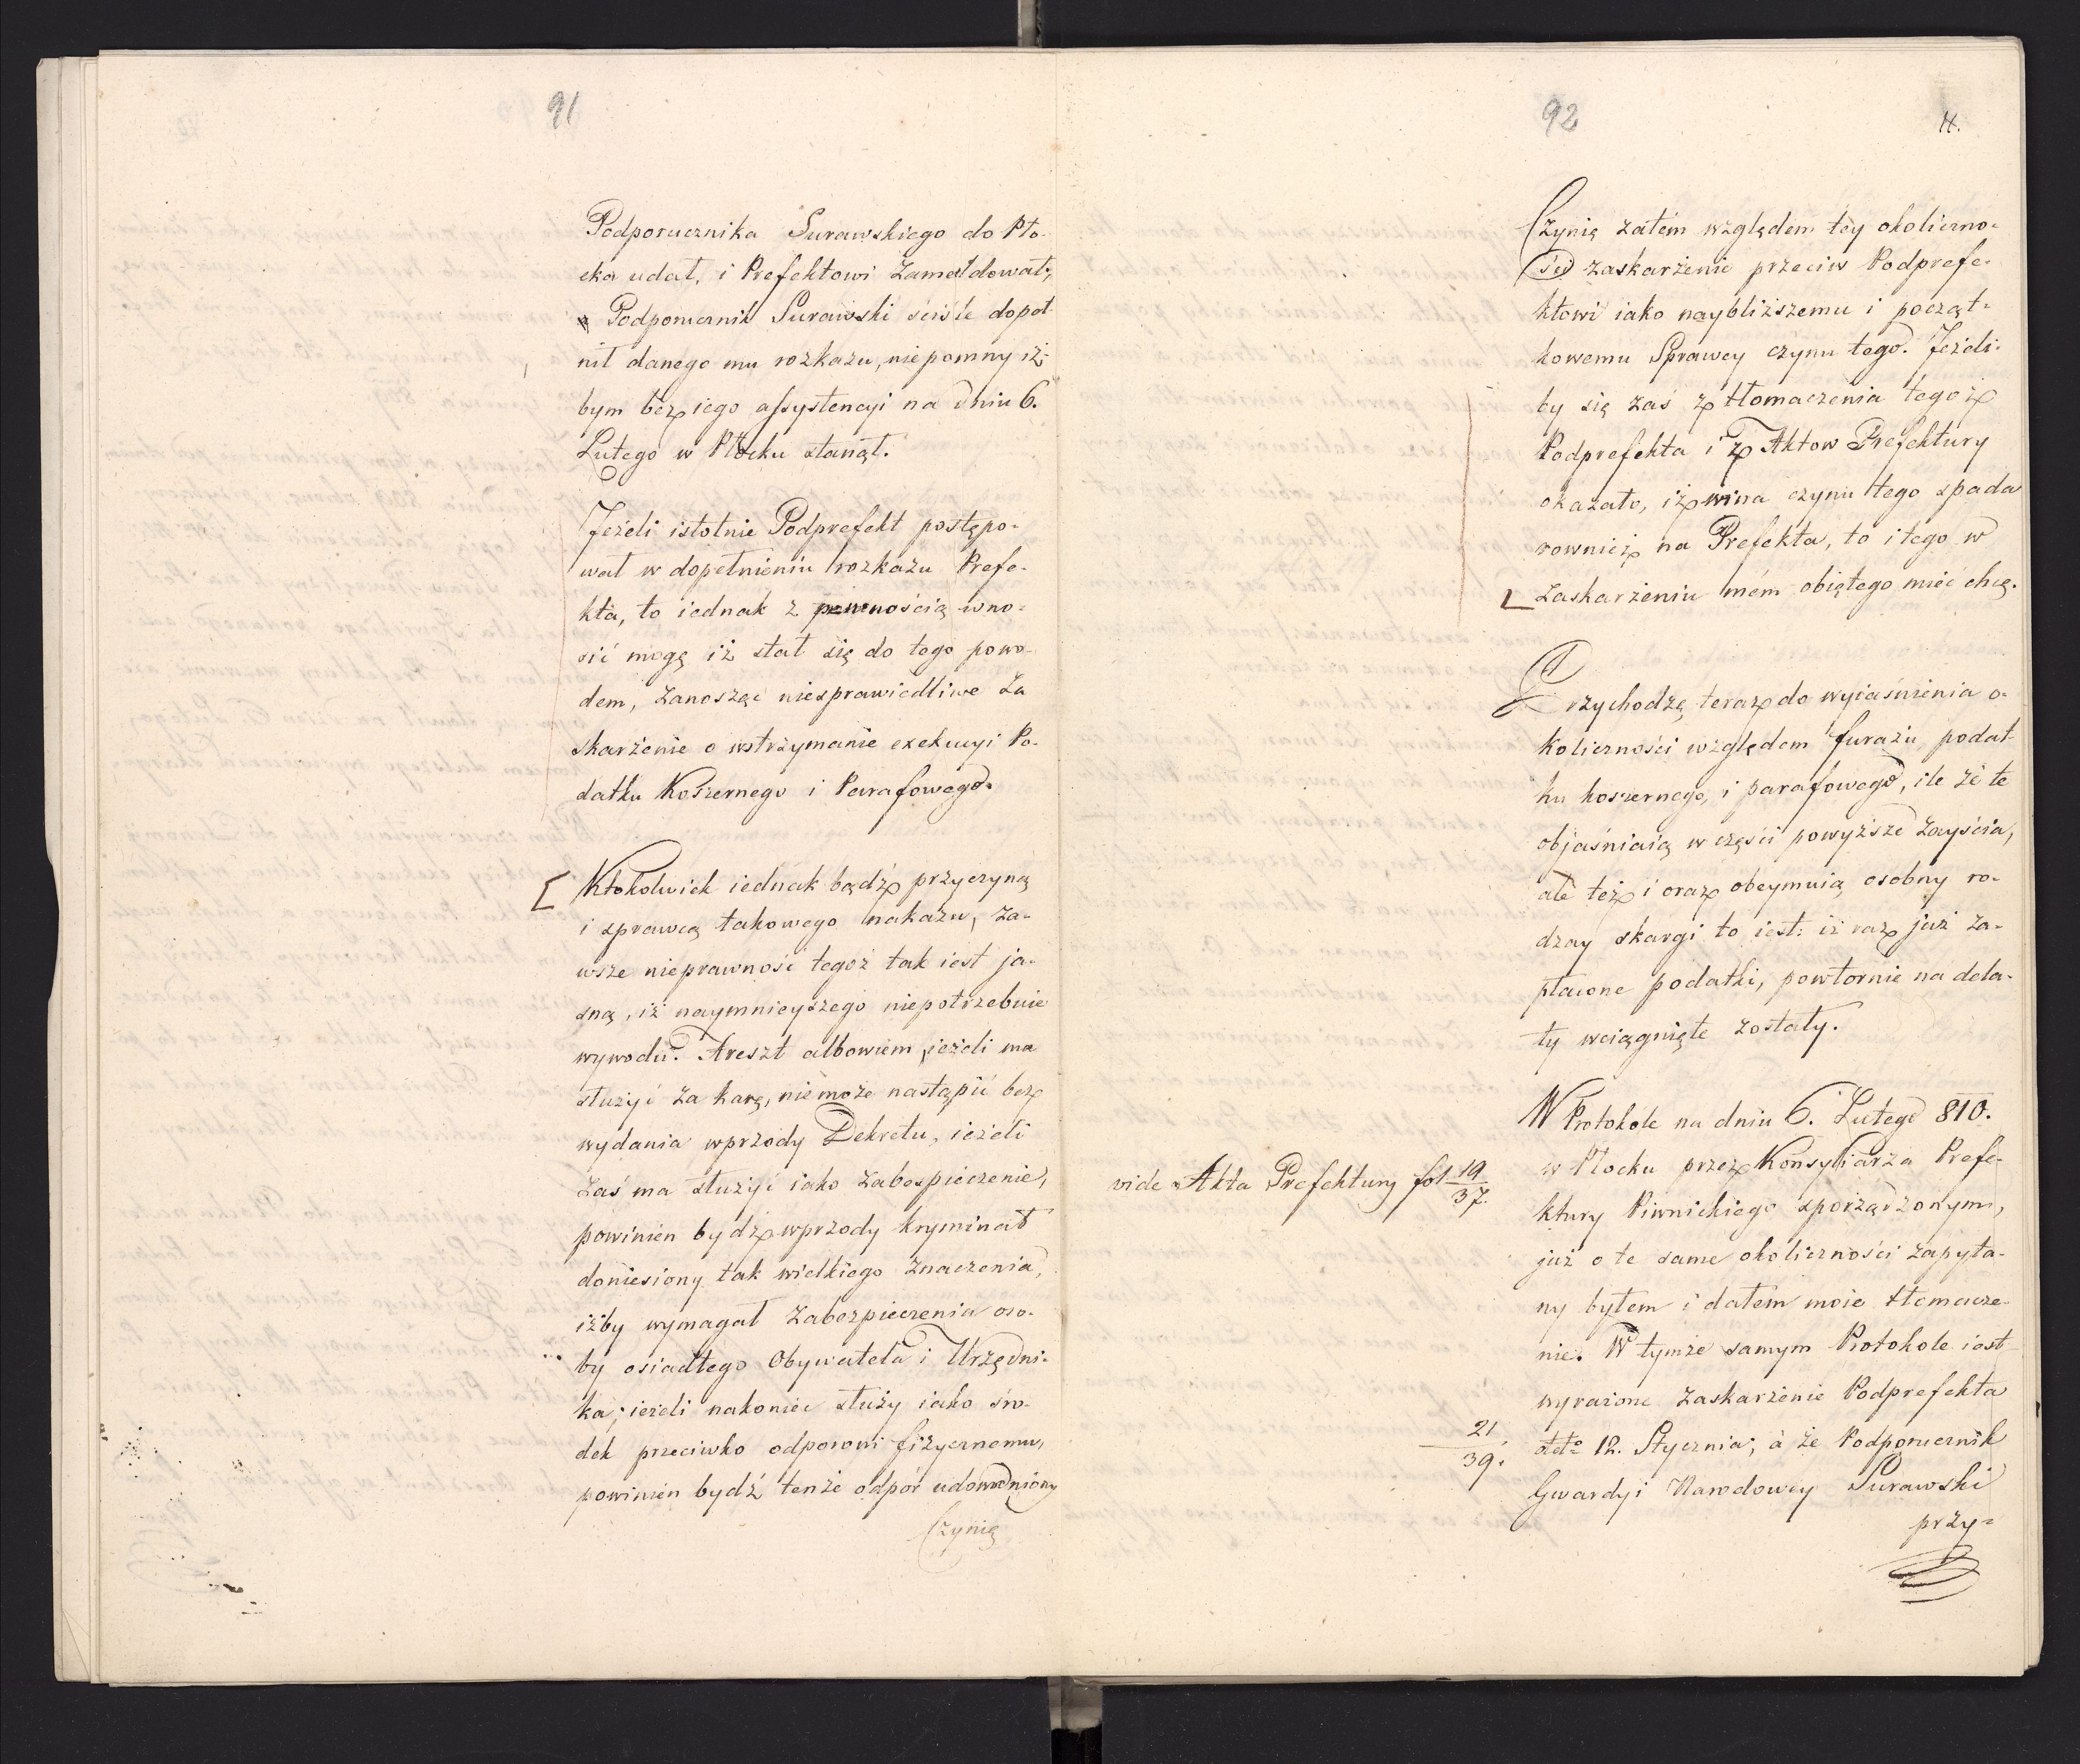 91
Podporucznika Surawskiego do Pło-
cka udał, i Prefektowi zameldował;
Podporucznik Surawski ściśle dopeł-
nił danego mu rozkazu, niepomny iż-
bym bez iego assystencyi na dniu 6.
Lutego w Płocku stanął.
Jeżeli istotnie Podprefekt postępo-
wał w dopełnieniu rozkazu Prefe-
kta, to iednak z pewnością wno-
sić mogę iż stał się do tego powo-
dem, zanosząc niesprawiedliwe za
skarżenie o wstrzymanie exekucyi Po-
datku Koszernego i Parafowego.
Ktokolwiek iednak bądź przyczyną
i sprawcą takowego nakazu, za-
wsze nieprawność tegoż tak iest ja-
sną, iż naymnieyszego niepotrzebuie
wywodu. Areszt albowiem, jeżeli ma
służyć za karę, niemoże nastąpić bez
wydania wprzody Dekretu, ieżeli
zaś ma służyć iako zabespieczenie,
powinien bydź wprzody kryminał
doniesiony tak wielkiego znaczenia,
iżby wymagał zabezpieczenia oso-
by osiadłego Obywatela i Urzędni-
ka; ieżeli nakoniec służy iako śro-
dek przeciwko odporowi fizycznemu,
powinien bydź tenże odpór udowodniony
Czynię
92
Czynię zatém względem téy okoliczno-
ści zaskarżenie przeciw Podprefe-
ktowi iako naybliższemu i począt-
kowemu Sprawcy czynu tego. Jeżeli-
by się zaś z tłomaczenia tegoż
Podprefekta i z Aktow Prefektury
okazało, iż wina czynu tego spada
rownież na Prefekta, to i tego w
zaskarżeniu mém obiętego mieć chcę.
Przychodzę teraz do wyiaśnienia o-
koliczności względem furażu, podat-
ku koszernego, i parafowego, ile że te
objaśniaią w części powyższe zayścia,
ale też i oraz obeymuią osobny ro-
dzay skargi to iest: iż raz już za-
płacone podatki, powtornie na dela-
ty wciągnięte zostały.
W Protokole na dniu 6. Lutego 810.
w Płocku przez Konsyliarza Prefe-
vide Akta Prefektury fol 19/37.
ktury Piwnickiego sporządzonym,
już o te same okoliczności zapyta-
ny byłem i dałem moie tłomacze-
nie. W tymże samym Protokole iest
wyrażone zaskarżenie Podprefekta
21/39.
ddto 12. Stycznia; à że Podporucznik
Gwardyi Narodowey Surawski
przy-